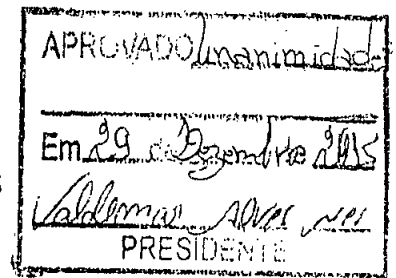 APROVADO Unanimidade
Em 29 de Dezembro 2015
Valdemar Alves
PRESIDENTE